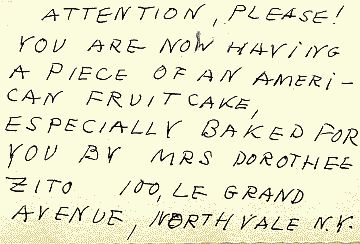 ATTENTION, PLEASE!
YOU ARE NOW HAVING
A PIECE OF AN AMERI-
CAN FRUITCAKE,
ESPECIALLY BAKED FOR
YOU BY MRS DOROTHEE
ZITO 100, LE GRAND
AVENUE, NORTHVALE N.Y.